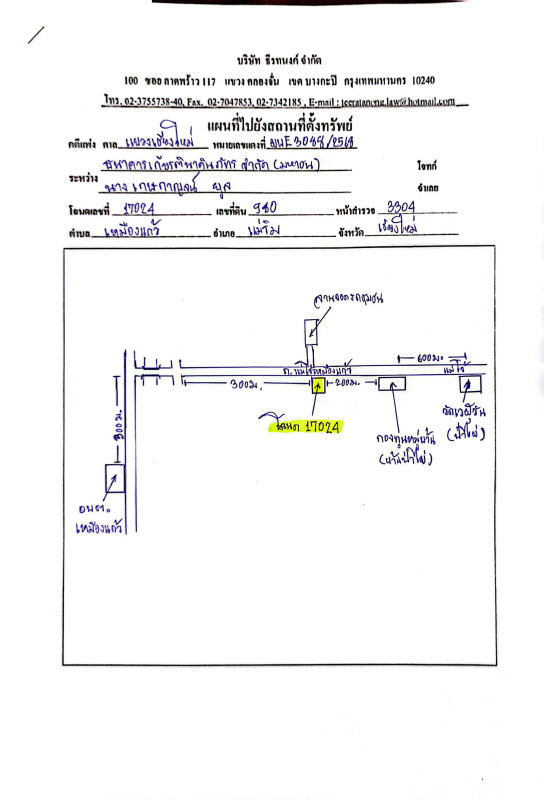 บริษัท ธีรทนงก์ จำกัด
100 ซอย ลาดพร้าว 117 แขวง คลองจั่น เขต บางกะปิ กรุงเทพมหานคร 10240
โทร. 02-3755738-40, Fax. 02-7047853, 02-7342185 , E-mail : teeratanong.law@hotmail.com
แผนที่ไปยังสถานที่ตั้งทรัพย์
คดีแพ่ง ศาล แขวงเชียงใหม่ หมายเลขแดงที่ ผบE
ธนาคารเกียรตินาคินภัทร จำกัด (มหาชน) โจทก์
ระหว่าง
นาง จำเลย
โฉนดเลขที่ 17024 เลขที่ดิน 980 หน้าสำรวจ 3304
ตำบล เหมืองแก้ว อำเภอ แม่ริม จังหวัด เชียงใหม่
ลานจอดรถชุมชน
600ม.
ถ.แม่โจ้เหมืองแก้ว แม่โจ้
300ม. 200ม.
300ม.
โฉนด 17024
กองทุนหมู่บ้าน
(บ้านป่าไผ่)
(ป่าไผ่)
อบต.
เหมืองแก้ว